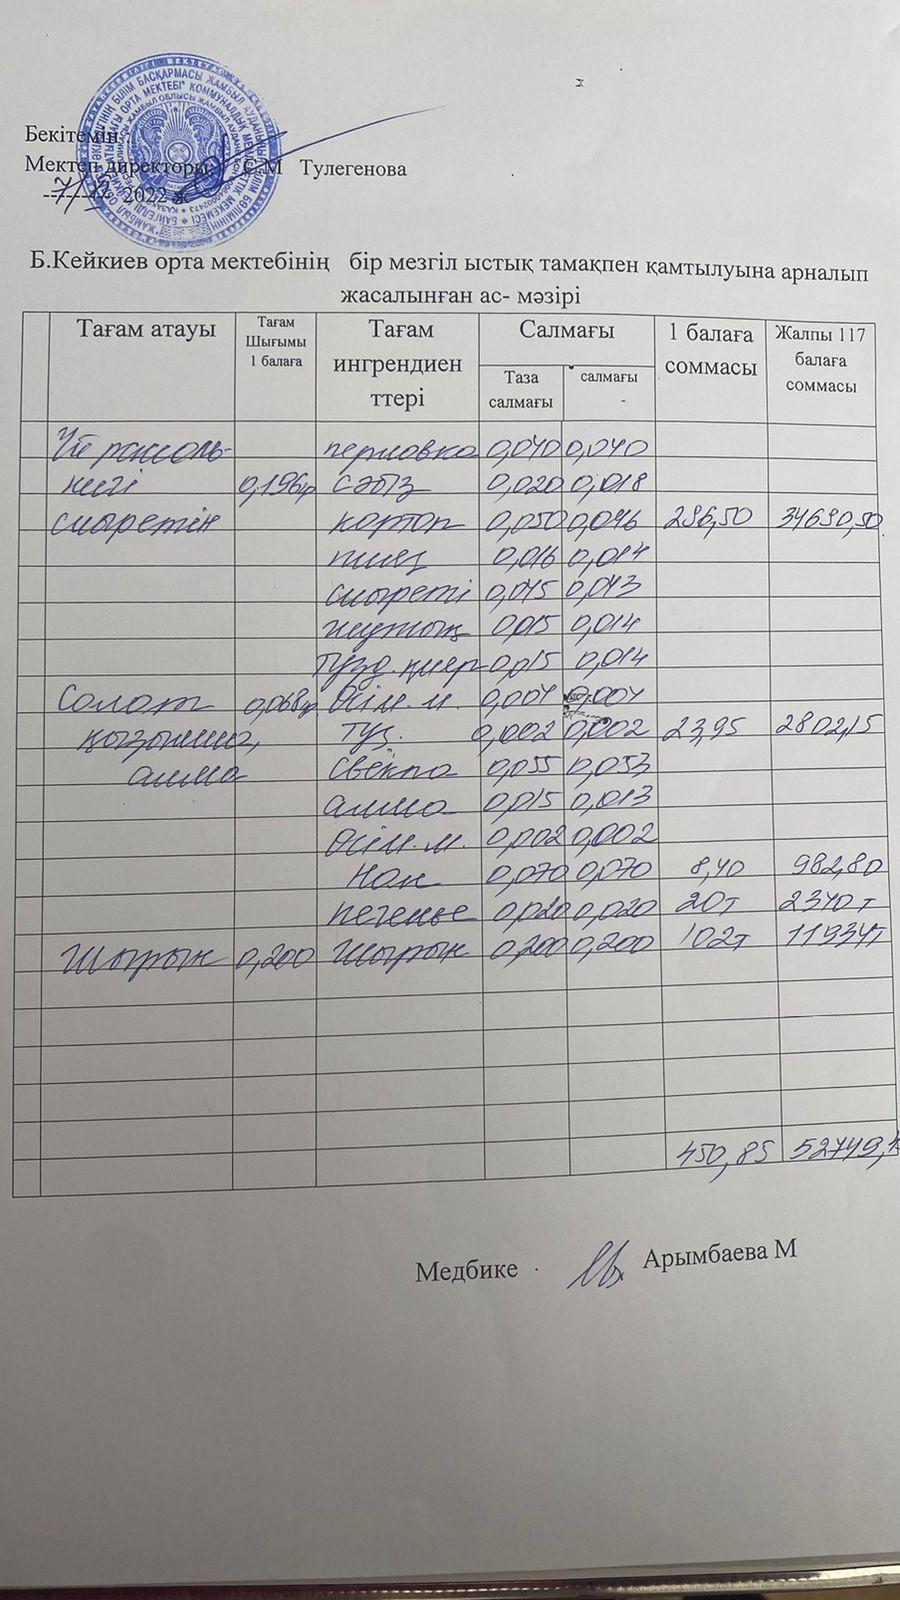 Бекітемін:
Мектеп директоры: С.М Тулегенова
7/XI 2022 ж
Б.Кейкиев орта мектебінің бір мезгіл ыстық тамақпен қамтылуына арналып
жасалынған ас- мәзірі
Тағам атауы Тағам Шығымы 1 балаға Тағам ингрендиен ттері Салмағы 1 балаға соммасы Жалпы 117 балаға соммасы
Таза салмағы салмағы -
Үй рассоль- перловка 0,040 0,040
нигі 0,196гр сәбіз 0,020 0,018
сиыретін картоп 0,050 0,046 296,50 34690,50
пияз 0,016 0,014
сиыреті 0,045 0,043
0,015 0,014
тұзд. қияр 0,015 0,014
Солат 0,068гр Өсім.м. 0,004 0,004
қызылша, тұз. 0,002 0,002 23,95 2802,15
алма свекла 0,055 0,053
алма 0,015 0,013
Өсім.м. 0,002 0,002
Нан 0,070 0,070 8,40 982,80
печенье 0,020 0,020 20т 2340т
Шырын 0,200 Шырын 0,200 0,200 102т 11934т
450,85 52749,4
Медбике Арымбаева М